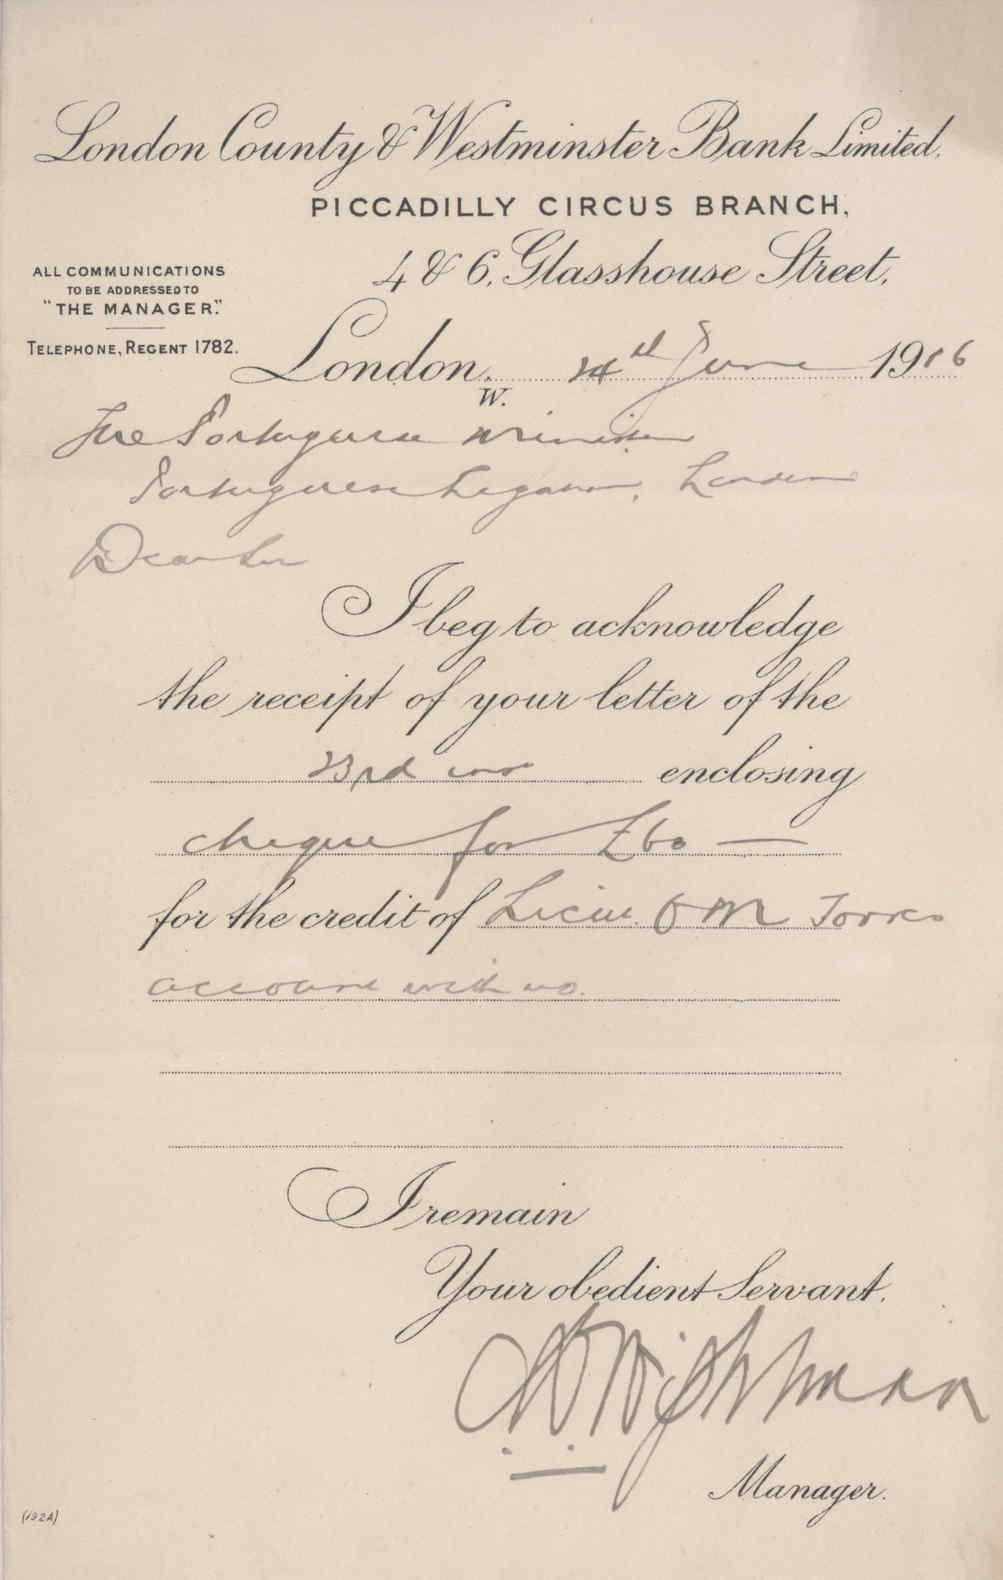 London County & Westminster Bank Limited.
PICCADILLY CIRCUS BRANCH,
4 & 6, Glasshouse Street,
ALL COMMUNICATIONS
TO BE ADDRESSED TO
"THE MANAGER."
TELEPHONE, REGENT 1782.
London, 24th June 1916
W.
The Portuguese Minister
Portuguese Legation, London
Dear Sir
I beg to acknowledge
the receipt of your letter of the
23rd inst enclosing
cheque for £60 —
for the credit of Lieut. O M Torres
account with us.
I remain
Your obedient Servant.
Wightman
Manager.
(192A)